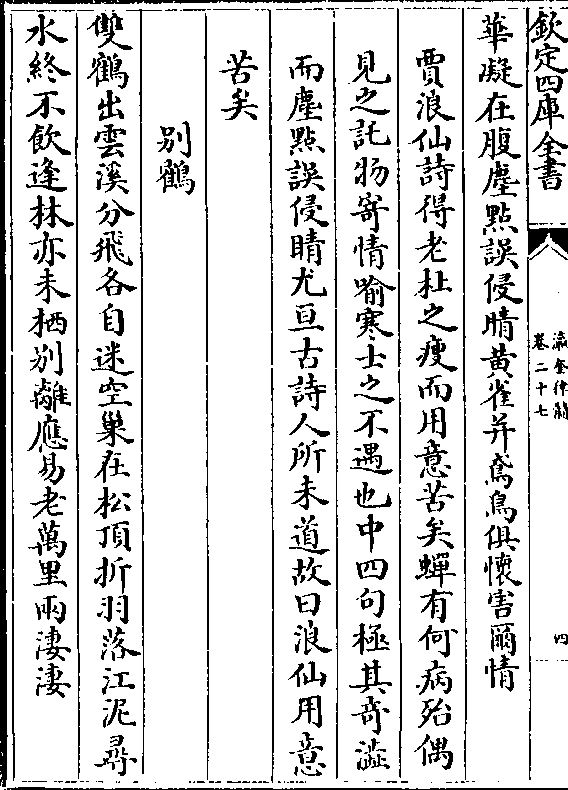 欽定四庫全書
瀛奎律髓
卷二十七
四
華凝在腹塵點誤侵睛黄雀并鳶鳥俱懷害爾情
賈浪仙詩得老杜之瘦而用意苦矣蟬有何病殆偶
見之託物寄情喻寒士之不遇也中四句極其奇澁
而塵點誤侵睛尤亘古詩人所未道故曰浪仙用意
苦矣
别鶴
雙鶴出雲溪分飛各自迷空巢在松頂折羽落江泥尋
水終不飲逢林亦未栖别離應易老萬里兩淒淒